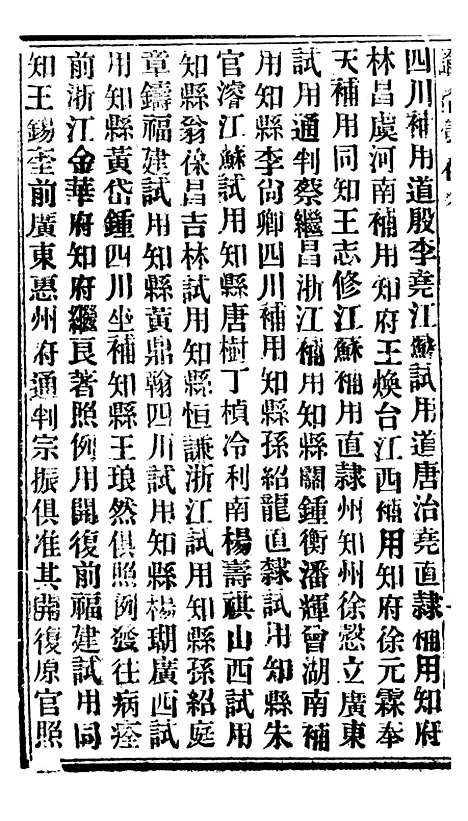 四川補用道殷李堯江蘇試用道唐治堯直隸補用知府
林昌虞河南補用知府王煥台江西補用知府徐元霖奉
天補用同知王志修江蘇補用直隸州知州徐愻立廣東
試用通判蔡繼昌浙江補用知縣關鍾衡潘輝曾湖南補
用知縣李尙卿四川補用知縣孫紹龍直隸試用知縣朱
官濬江蘇試用知縣唐樹丁楨冷利南楊壽祺山西試用
知縣翁保昌吉林試用知縣恒謙浙江試用知縣孫紹庭
章鑄福建試用知縣黃鼎翰四川試用知縣楊瑚廣西試
用知縣黃岱鍾四川坐補知縣王琅然俱照例發往病痊
前浙江金華府知府繼良著照例用開復前福建試用同
知王錫奎前廣東惠州府通判宗振俱准其開復原官照